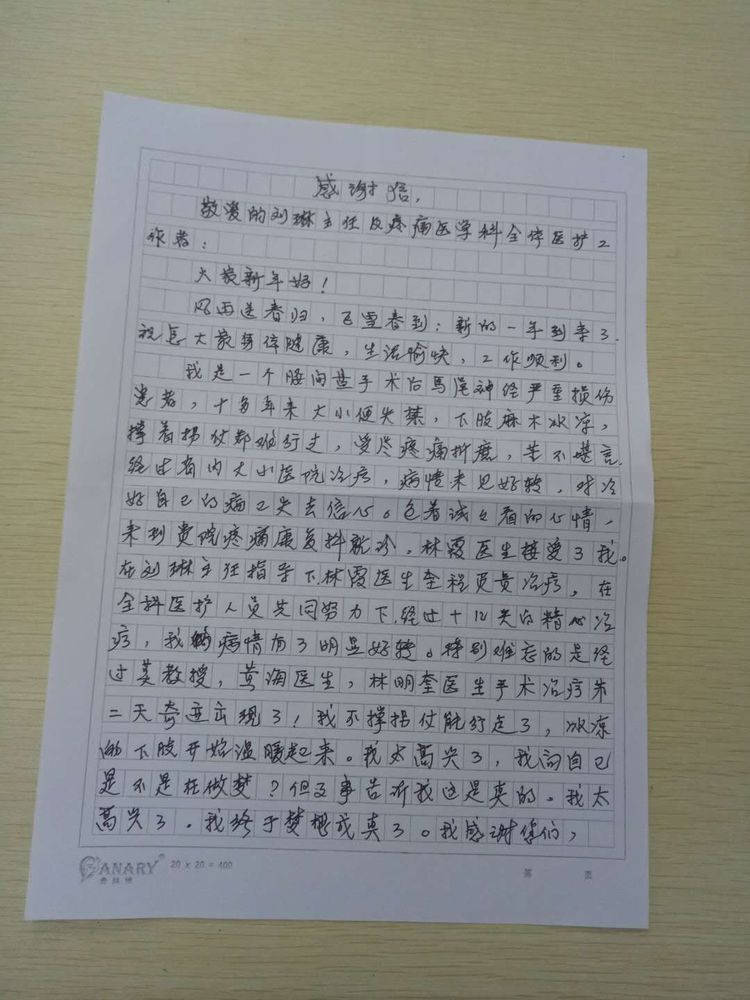 感谢信,
敬爱的刘琳主任及疼痛医学科全体医护工
作者:
大家新年好!
风雨送春归,飞雪春到:新的一年到来了.
祝愿大家身体健康,生活愉快,工作顺利。
我是一个腰间盘手术后马尾神经严重损伤
患者,十多年来大小便失禁,下肢麻木冰凉,
撑着拐杖都难行走,受尽疼痛折磨,苦不堪言.
经过省内大小医院治疗,病情未见好转,对治
好自己的病已失去信心。包着试々看的心情,
来到贵院疼痛康复科就诊,林霞医生接受了我。
在刘琳主任指导下.林霞医生全程负责治疗,在
全科医护人员共同努力下.经过十几天的精心治
疗,我的病情有了明显好转。特别难忘的是经
过吴教授,黄海医生,林明奎医生手术治疗第
二天奇迹出现了!我不撑拐杖能行走了,冰凉
的下肢开始温暖起来。我太高兴了,我问自己
是不是在做梦?但事告诉我这是真的。我太
高兴了。我终于梦想成真了。我感谢你们,
CANARY® 20 x 20 = 400 第 页